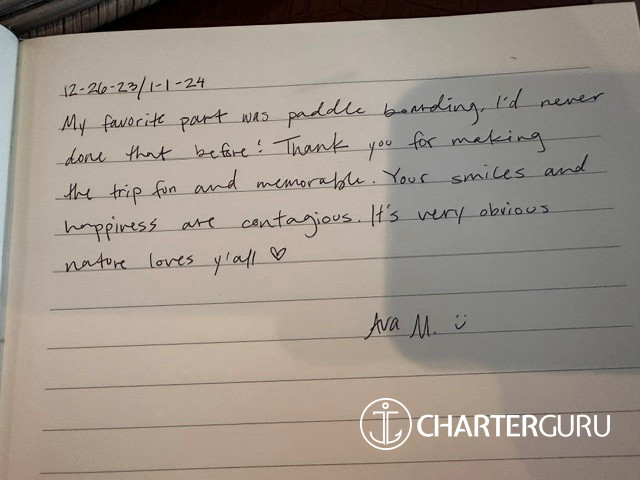 12-26-23/1-1-24
My favorite part was paddle boarding. I'd never
done that before! Thank you for making
the trip fun and memorable. Your smiles and
happiness are contagious. It's very obvious
nature loves y'all ♡
Ava M. :)
CHARTERGURU